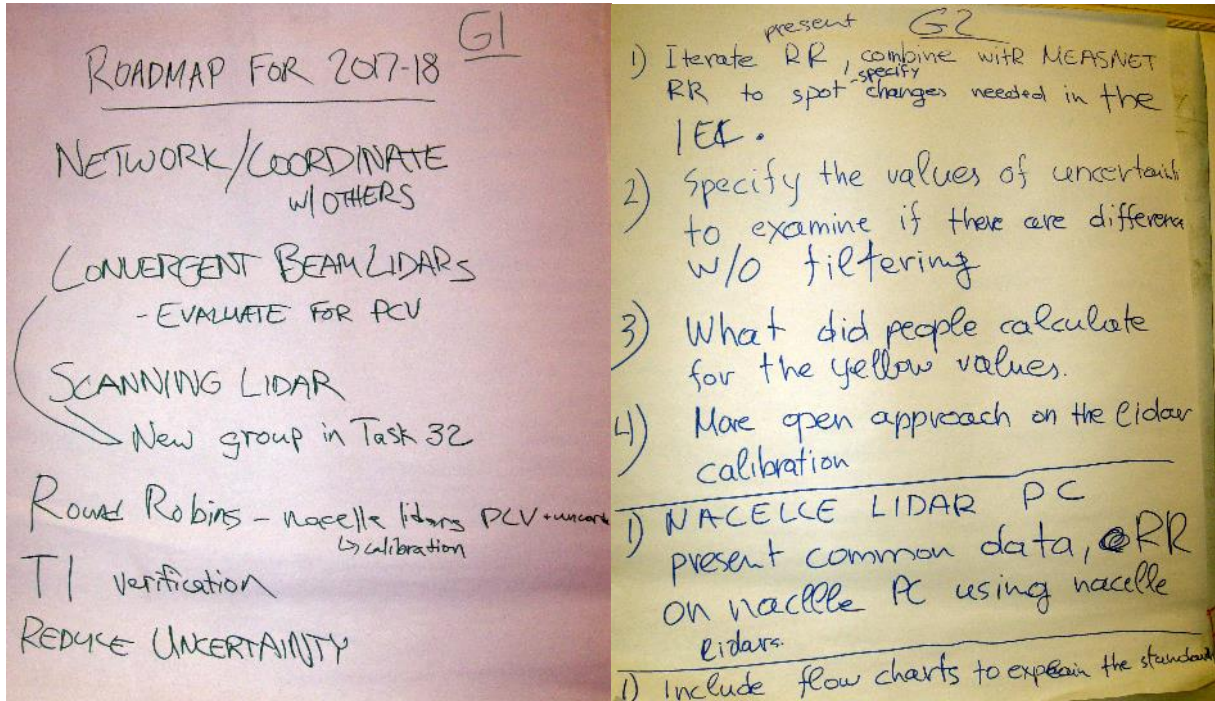 G1
ROADMAP FOR 2017-18
NETWORK/COORDINATE
W/OTHERS
CONVERGENT BEAM LIDARS
- EVALUATE FOR PCV
SCANNING LIDAR
New group in Task 32
Round Robins - nacelle lidars PCV + uncert
↳ calibration
TI verification
REDUCE UNCERTAINTY
G2
present
1) Iterate RR, combine with MEASNET
-specify
RR to spot changes needed in the
IEC.
2) Specify the values of uncertainti
to examine if there are differenc
w/o filtering
3) What did people calculate
for the yellow values.
4) More open approach on the lidar
calibration
1) NACELLE LIDAR PC
present common data, RR
on nacelle PC using nacelle
lidars.
1) Include flow charts to explain the standard